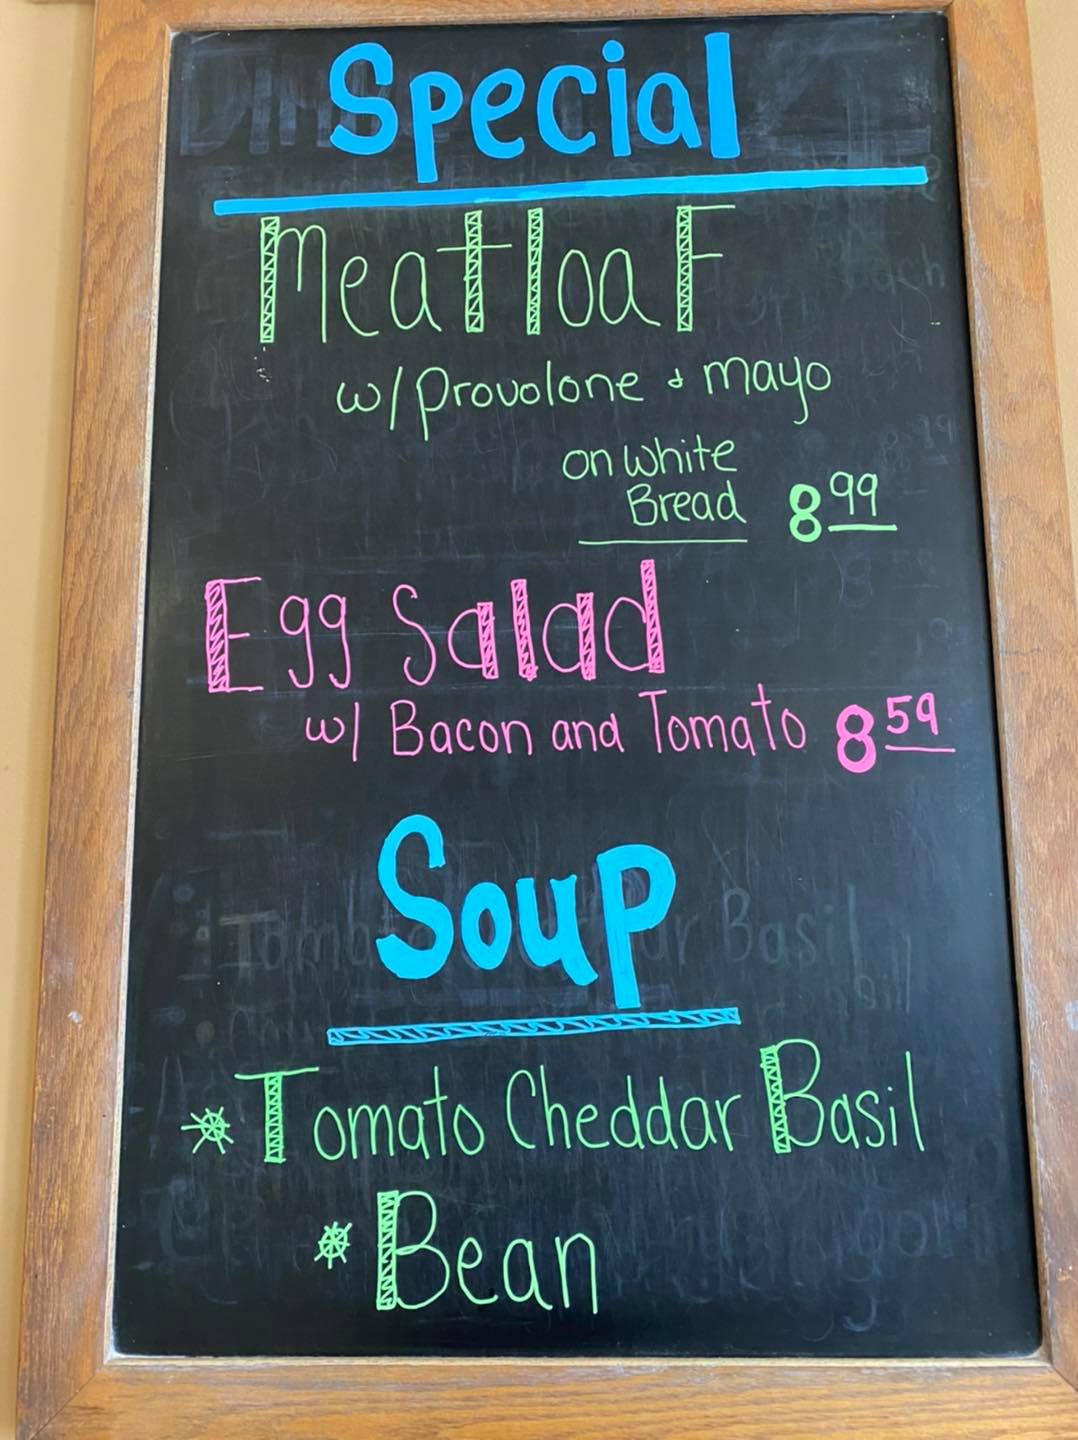 Special
Meatloaf
w/ Provolone & mayo
on white
Bread 8 99
Egg Salad
w/ Bacon and Tomato 8 59
Soup
* Tomato Cheddar Basil
* Bean